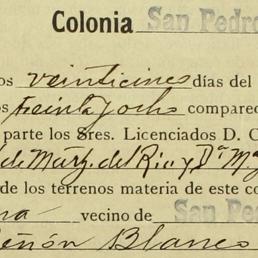 Colonia San Pedro
os veinticinco días del
os treinta y ocho compare
parte los Sres. Licenciados D. C
de Mart. del Rio y Da M
de los terrenos materia de este co
na vecino de San Pe
Zenón Blanco